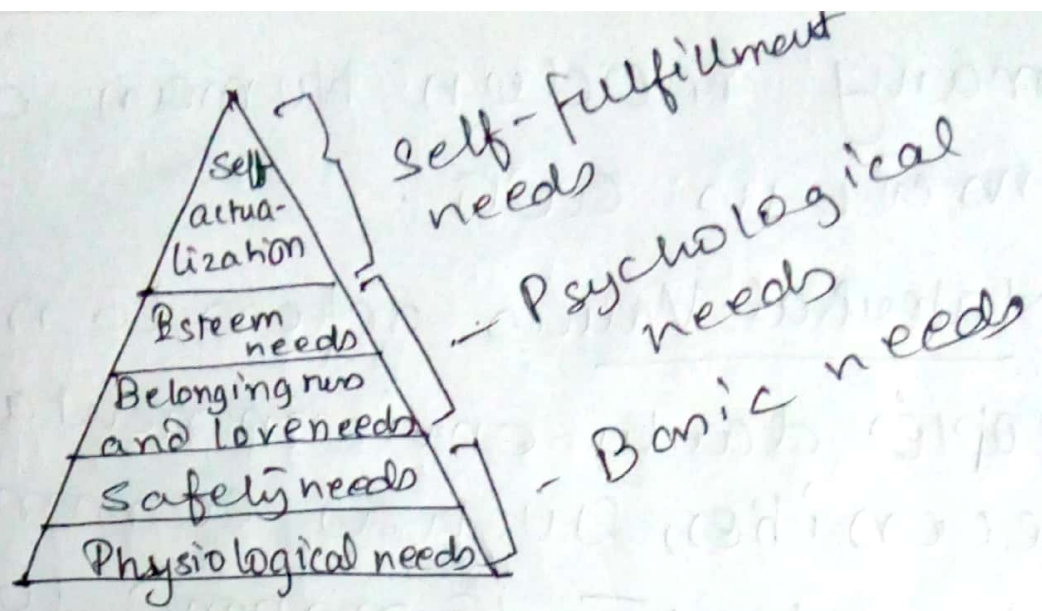 Self
actua-
lization
Esteem
needs
Belongingness
and love needs
Safety needs
Physiological needs
Self-fulfillment
needs
- Psychological
needs
- Basic needs